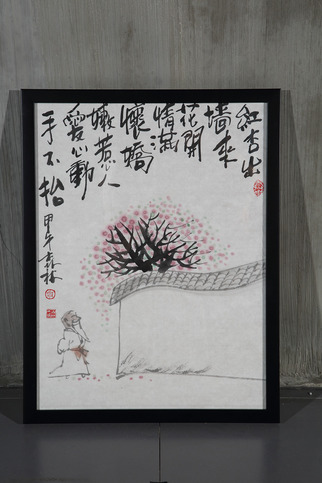 紅杏出
墙来
花開
情滿
懷嬌
嫩人
愛心動
手不抬
甲午森林